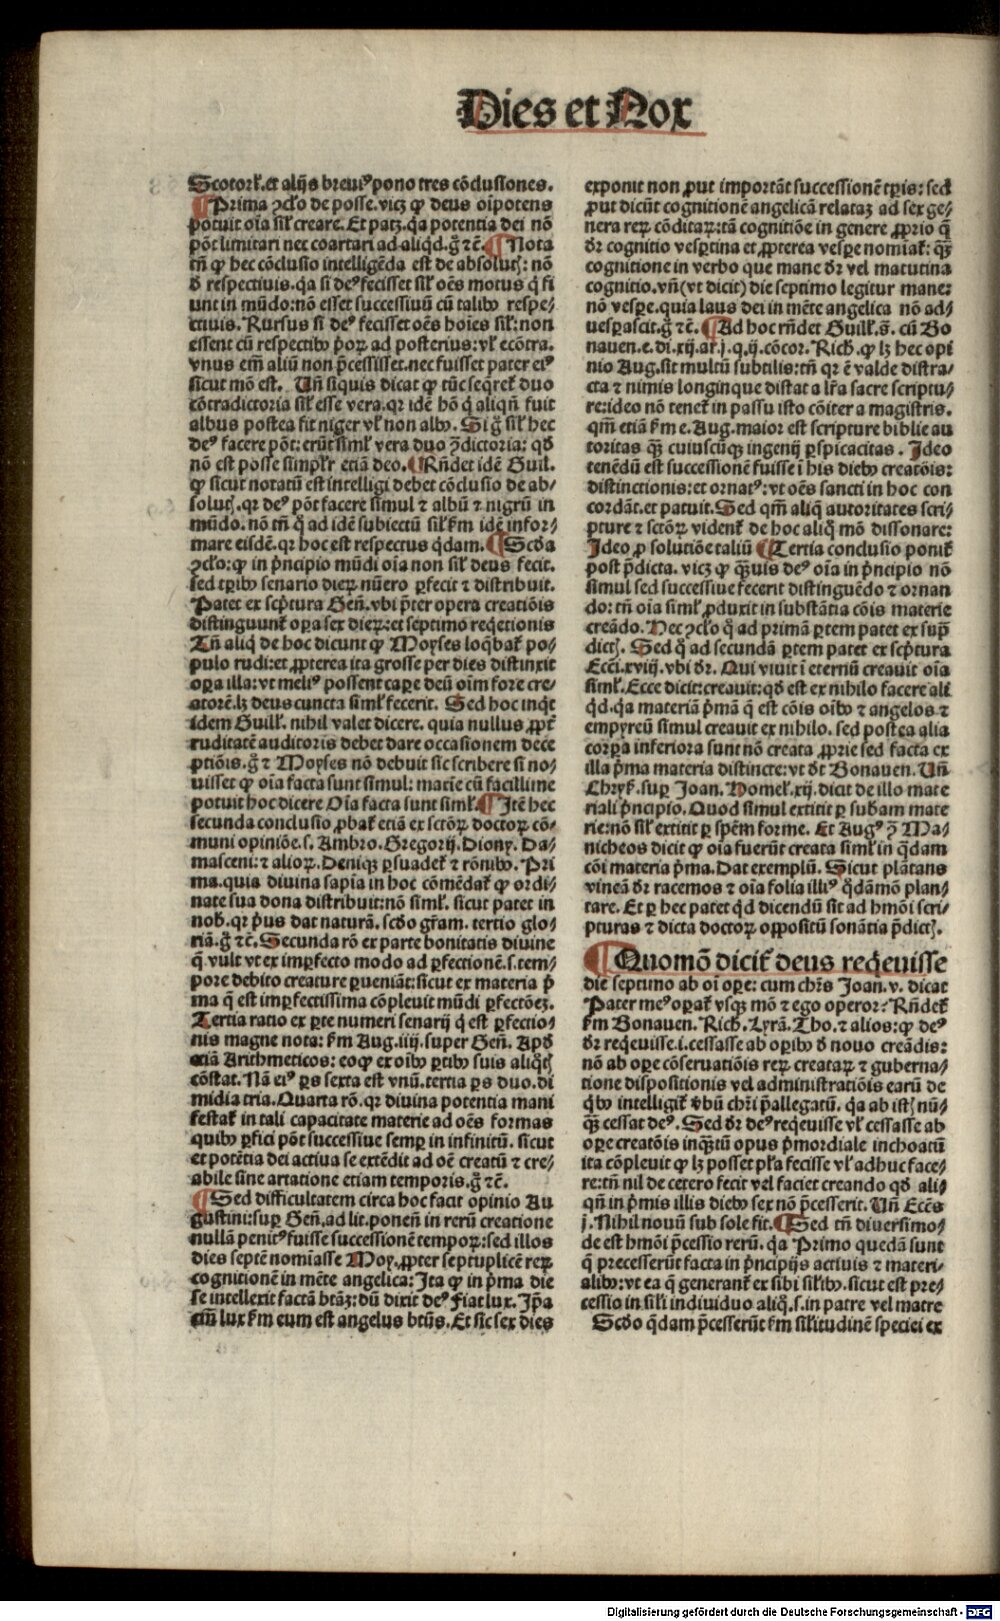 Dies et Nox
Scotorꝭ. et alijs breuiꝰ pono tres cōclusiones.
¶ Prima ↄclo de posse. vicꝫ ꝙ deus oīpotens
potuit oīa sil̄ creare. Et patꝫ. qa potentia dei nō
pōt limitari nec coartari ad aliqd. g̊ ⁊c̄. ¶ Nota
tn̄ ꝙ hec cōclusio intelligēda est de absoluth: nō
d̄ respectiuis. qa si deꝰ fecisset sil̄ oēs motus q̄ fi
unt in mūdo: nō esset successiuū cū talibꝰ respe⸗
ctiuis. Rursus si deꝰ fecisset oēs hoīes sil̄: non
essent cū respectibꝰ pōꝝ ad posterius: vl̄ ecōtra.
vnus em̄ aliū non p̄cessisset. nec fuisset pater eiꝰ
sicut mō est. Un̄ siquis dicat ꝙ tūc seqret̄ duo
cōtradictoria sil̄ esse vera. qr idē hō q̄ aliqn̄ fuit
albus postea fit niger vl̄ non albꝰ. Si g̊ sil̄ hec
deꝰ facere pōt: erūt siml̄ vera duo ↄ̄dictoria: qd̄
nō est posse simpl̄r etiā deo. ¶ Rn̄det idē Guil.
ꝙ sicut notatū est intelligi debet cōclusio de ab⸗
soluth. qr deꝰ pōt facere simul ⁊ albū ⁊ nigrū in
mūdo. nō tn̄ q̄ ad idē subiectū sil̄ km̄ idē infor⸗
mare eisdē. qr hoc est respectus q̄dam. ¶ Scd̄a
ↄclo: ꝙ in p̄ncipio mūdi oīa non sil̄ deus fecit.
sed tpibꝰ senario dieꝝ nūero ꝑfecit ⁊ distribuit.
Patet ex scp̄tura Gen̄. vbi p̄ter opera creatiōis
distinguunt̄ oꝑa sex dieꝝ: et septimo reqetionis
Tn̄ aliq̄ de hoc dicunt ꝙ Moyses loq̄bat̄ po⸗
pulo rudi: et ꝓpterea ita grosse per dies distinxit
oꝑa illa: vt meliꝰ possent caꝑe deū oīm fore cre⸗
atorē. lꝫ deus cuncta siml̄ fecerit. Sed hoc inqt
idem Guill. nihil valet dicere. quia nullus ꝓpt̄
ruditatē auditoris debet dare occasionem dece
ptiōis. g̊ ⁊ Moyses nō debuit sic scribere si no⸗
uisset ꝙ oīa facta sunt simul: maxīe cū facillime
potuit hoc dicere Oīa facta sunt siml̄. ¶ Itē hec
secunda conclusio ꝓbat̄ etiā ex sctōꝝ doctoꝝ cō⸗
muni opiniōe. s. Ambro. Gregorij. Diony. Da⸗
masceni: ⁊ alioꝝ. Deniqꝫ ꝑsuadet̄ ⁊ rōnibꝰ. Pri
ma. quia divina sapīa in hoc cōmēdat̄ ꝙ ordi⸗
nate sua dona distribuit: nō siml̄. sicut patet in
nob. qr p̄us dat naturā. scd̄o gr̄am. tertio glo⸗
riā. g̊ ⁊c̄. Secunda rō ex parte bonitatis diuine
q̄ vult vt ex imꝑfecto modo ad ꝑfectionē. s. tem⸗
pore debito creature ꝑueniāt: sicut ex materia p̄
ma q̄ est imꝑfectissima cōpleuit mūdi ꝑfectōeꝫ.
Tertia ratio ex ꝑte numeri senarij q̄ est ꝑfectio⸗
nis magne nota: km̄ Aug. iiij. super Gen̄. Apd̄
etiā Arithmeticos: eoꝙ ex oībꝰ ꝑtibꝰ suis aliqth
cōstat. Nā eiꝰ ꝑs sexta est vnū. tertia ꝑs duo. di
midia tria. Quarta rō. qr diuina potentia mani
festat̄ in tali capacitate materie ad oēs formas
quibꝰ ꝑfici pōt successiue semꝑ in infinitū. sicut
et potētia dei actiua se extēdit ad oē creatū ⁊ cre⸗
abile sine artatione etiam temporis. g̊ ⁊c̄.
¶ Sed difficultatem circa hoc facit opinio Au
gustini: suꝑ Gen̄. ad lit. ponen̄ in rerū creatione
nullā penitꝰ fuisse successionē tempoꝝ: sed illos
dies septē nomīasse Moy. ꝓpter septuplicē reꝝ
cognitionē in mēte angelica: Ita ꝙ in p̄ma die
se intellexit factā btāꝫ: dū dixit deꝰ Fiat lux. Ip̄a
em̄ lux km̄ eum est angelus btūs. Et sic sex dies
exponit non ꝓut importāt successionē tꝑis: sed
ꝓut dicūt cognitionē angelicā relataꝫ ad sex ge⸗
nera reꝝ cōditaꝝ: tā cognitiōe in genere ꝓprio q̄ꝫ
dr̄ cognitio vesꝑtina et ꝓpterea vesꝑe nomīat̄: q̄ꝫ
cognitione in verbo que mane dr̄ vel matutina
cognitio. vn̄ (vt dicit) die septimo legitur mane:
nō vesꝑe. quia laus dei in mēte angelica nō ad⸗
uesꝑascit. g̊ ⁊c̄. ¶ Ad hoc rn̄det Guill. s̄. cū Bo
nauen. e. di. xij. ar. j. q. ij. cōcor. Rich. ꝙ lꝫ hec opi
nio Aug. sit multū subtilis: tn̄ qr ē valde distra⸗
cta ⁊ nimis longinque distat a lr̄a sacre scriptu⸗
re: ideo nō tenet̄ in passu isto cōiter a magistris.
qm̄ etiā km̄ e. Aug. maior est scripture biblie au
toritas q̄ꝫ cuiuscūqꝫ ingenij ꝑspicacitas. Ideo
tenēdū est successionē fuisse ī his diebꝰ creatōis:
distinctionis: et ornatꝰ: vt oēs sancti in hoc con
cordāt. et patuit. Sed qm̄ aliq̄ autoritates scri⸗
pture ⁊ sctōꝝ vident̄ de hoc aliq̄ mō dissonare:
Ideo ꝓ solutiōe taliū ¶ Tertia conclusio ponit̄
post p̄dicta. vicꝫ ꝙ q̄ꝫuis deꝰ oīa in p̄ncipio nō
simul sed successiue fecerit distinguēdo ⁊ ornan
do: tn̄ oīa siml̄ ꝓduxit in substātia cōis materie
creādo. Hec ↄclo q̄ ad primā ꝑtem patet ex sup̄
dicth. Sed q̄ ad secundā ꝑtem patet ex scp̄tura
Ecci. xviij. vbi dr̄. Qui viuit ī eternū creauit oīa
siml̄. Ecce dicit: creauit: qd̄ est ex nihilo facere ali
qd. qa materiā p̄mā q̄ est cōis oībꝰ ⁊ angelos ⁊
empyreū simul creauit ex nihilo. sed postea alia
corꝑa inferiora sunt nō creata ꝓprie sed facta ex
illa p̄ma materia distincte: vt dt̄ Bonauen. Un̄
Chryſ. suꝑ Joan. Homel̄. xij. dicit de illo mate
riali p̄ncipio. Quod simul extitit ꝑ subām mate
rie: nō sil̄ extitit ꝑ spēm forme. Et Augꝰ ↄ̄ Ma⸗
nicheos dicit ꝙ oīa fuerūt creata siml̄ in q̄dam
cōi materia p̄ma. Dat exemplū. Sicut plātans
vineā dr̄ racemos ⁊ oīa folia illiꝰ q̄dāmō plan⸗
tare. Et ꝑ hec patet qd̄ dicendū sit ad hmōi scri⸗
pturas ⁊ dicta doctoꝝ oppositū sonātia p̄dicth.
¶ Quomō dicit̄ deus reqeuisse
die septimo ab oī oꝑe: cum chrs Joan. v. dicat
Pater meꝰ oꝑat̄ vsqꝫ mō ⁊ ego operor: Rn̄det̄
km̄ Bonauen. Rich. Lyrā. Tho. ⁊ alios: ꝙ deꝰ
dr̄ reqeuisse. i. cessasse ab oꝑibꝰ d̄ nouo creādis:
nō ab oꝑe cōseruatiōis reꝝ creataꝝ ⁊ guberna⸗
tione dispositionis vel administratiōis earū de
qbꝰ intelligit̄ vbū chr̄i p̄allegatū. qa ab isth nū⸗
q̄ꝫ cessat deꝰ. Sed dr̄ deꝰ reqeuisse vl̄ cessasse ab
oꝑe creatōis inq̄ꝫtū opus p̄mordiale inchoatū
ita cōpleuit ꝙ lꝫ posset pl̄a fecisse vl̄ adhuc face⸗
re: tn̄ nil de cetero fecit vel faciet creando qd̄ ali⸗
qn̄ in p̄mis illis diebꝰ sex nō p̄cesserit. Un̄ Ecēs
j. Nihil nouū sub sole fit. ¶ Sed tn̄ diuersimo⸗
de est hmōi p̄cessio rerū. qa Primo quedā sunt
q̄ precesserūt facta in p̄ncipijs actiuis ⁊ materi⸗
alibꝰ: vt ea q̄ generant̄ ex sibi sil̄ibꝰ. sicut est pre⸗
cessio in sil̄i indiuiduo aliq̄. s. in patre vel matre
Scd̄o q̄dam p̄cesserūt km̄ sil̄itudinē speciei ex
Digitalisierung gefördert durch die Deutsche Forschungsgemeinschaft - DFG